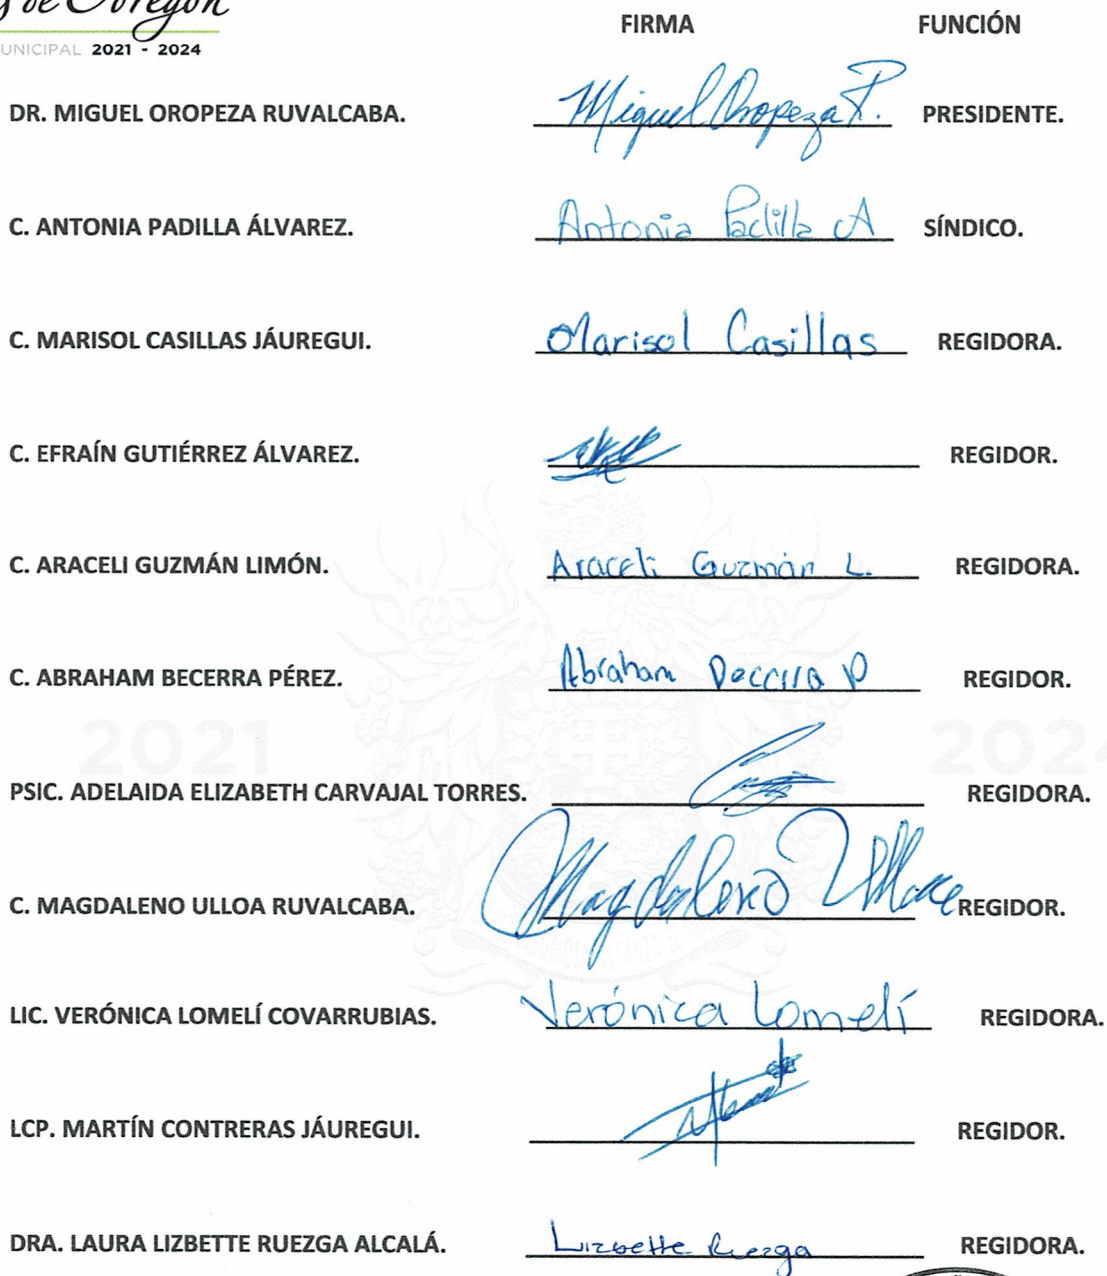 de Obregón
UNICIPAL 2021 - 2024
FIRMA FUNCIÓN
DR. MIGUEL OROPEZA RUVALCABA. Miguel Oropeza R. PRESIDENTE.
C. ANTONIA PADILLA ÁLVAREZ. Antonia Padilla A SÍNDICO.
C. MARISOL CASILLAS JÁUREGUI. Marisol Casillas REGIDORA.
C. EFRAÍN GUTIÉRREZ ÁLVAREZ. REGIDOR.
C. ARACELI GUZMÁN LIMÓN. Araceli Guzmán L. REGIDORA.
C. ABRAHAM BECERRA PÉREZ. Abraham Becerra P REGIDOR.
2021 2024
PSIC. ADELAIDA ELIZABETH CARVAJAL TORRES. REGIDORA.
C. MAGDALENO ULLOA RUVALCABA. Magdaleno Ulloa REGIDOR.
LIC. VERÓNICA LOMELÍ COVARRUBIAS. Verónica Lomelí REGIDORA.
LCP. MARTÍN CONTRERAS JÁUREGUI. REGIDOR.
DRA. LAURA LIZBETTE RUEZGA ALCALÁ. Lizbette Ruezga REGIDORA.